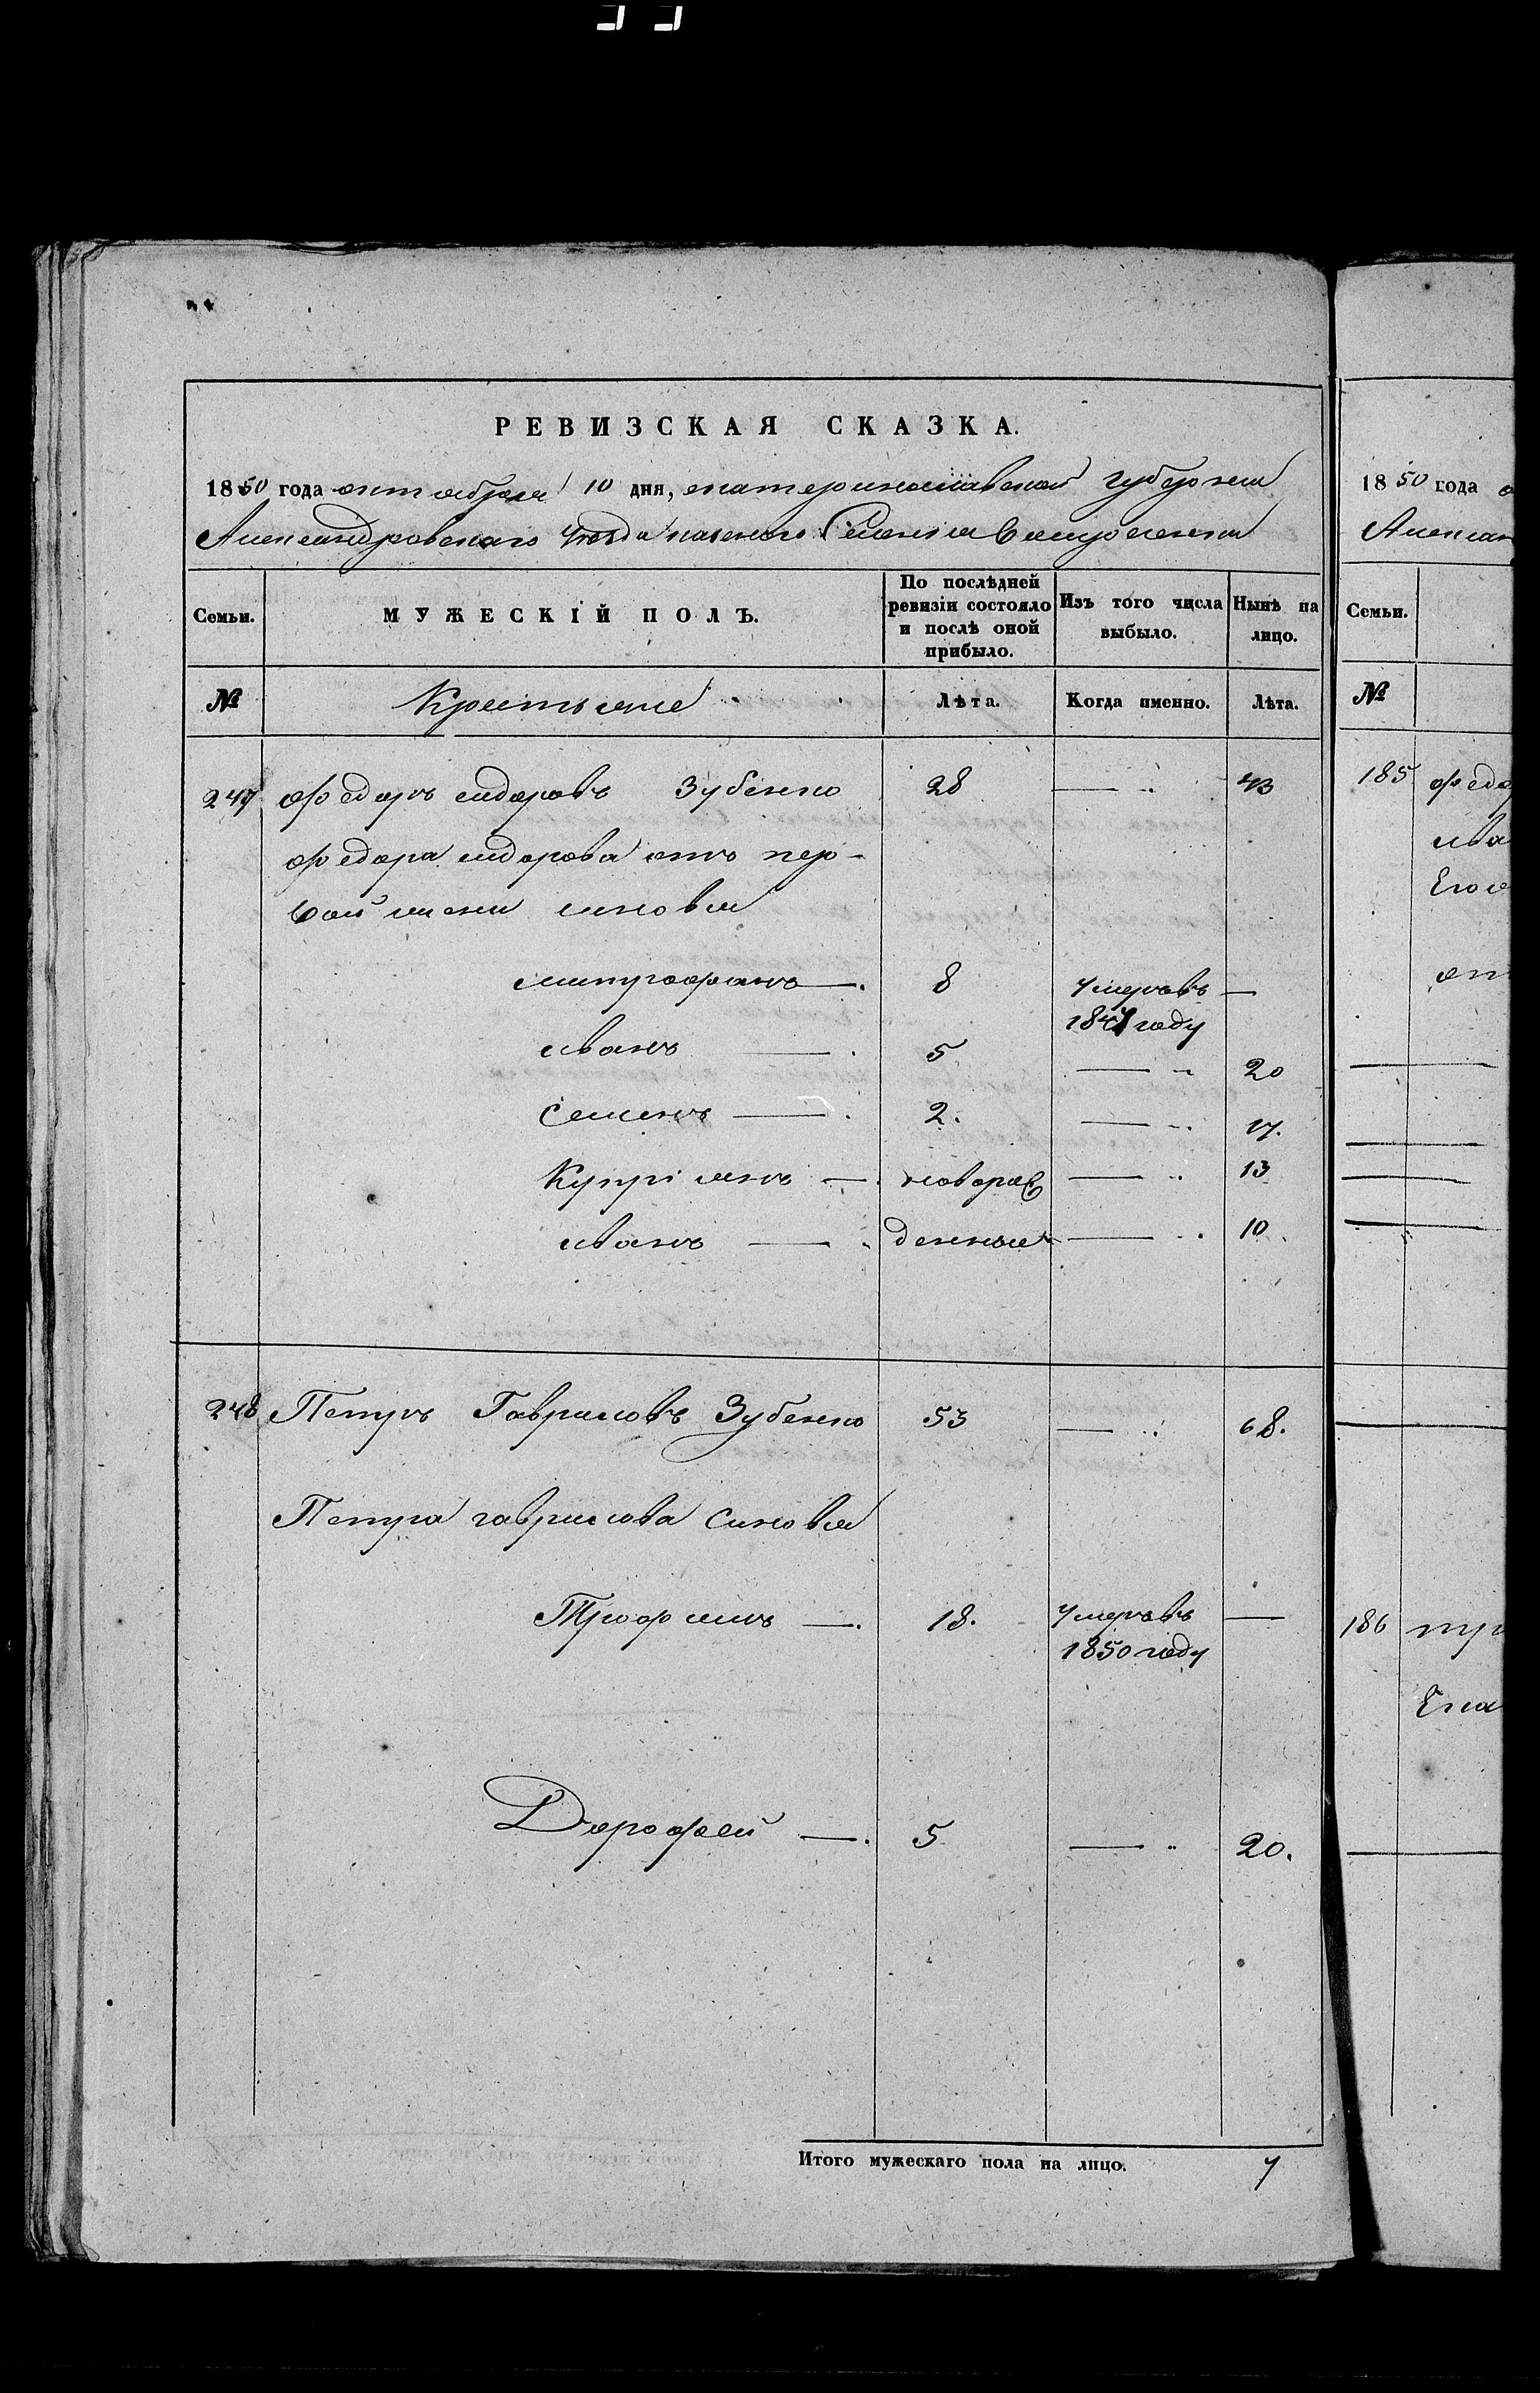 РЕВИЗСКАЯ СКАЗКА.
1850 года октября 10 дня, екатеринославской губернии
Александровскаго уезда казеного Селения
Семьи.
МУЖЕСКІЙ ПОЛЪ.
По послѣдней ревизіи состояло и послѣ оной прибыло.
Изъ того числа выбыло.
Нынѣ на лицо.
№
Крестьяне
Лѣта.
Когда именно.
Лѣта.
247 федоръ сидоровъ Зубенко 28 — 43
федора сидорова отъ пер-
вой жени синовья
митрофанъ —. 8 умеръ въ —
1847 году
иванъ — . 5 — 20
Семенъ — . 2. — 17.
Купріянъ — новорож — 13
иванъ — денные — 10
248 Петръ Гавриловъ Зубенко 53 — 68.
Петра гаврилова синовья
Трофимъ —. 18. умеръ въ —
1850 году
Дорофей —. 5 — 20.
Итого мужескаго пола на лицо. 7
1850 года
Алексан
Семьи.
№
185 федо
ива
Его
от
186